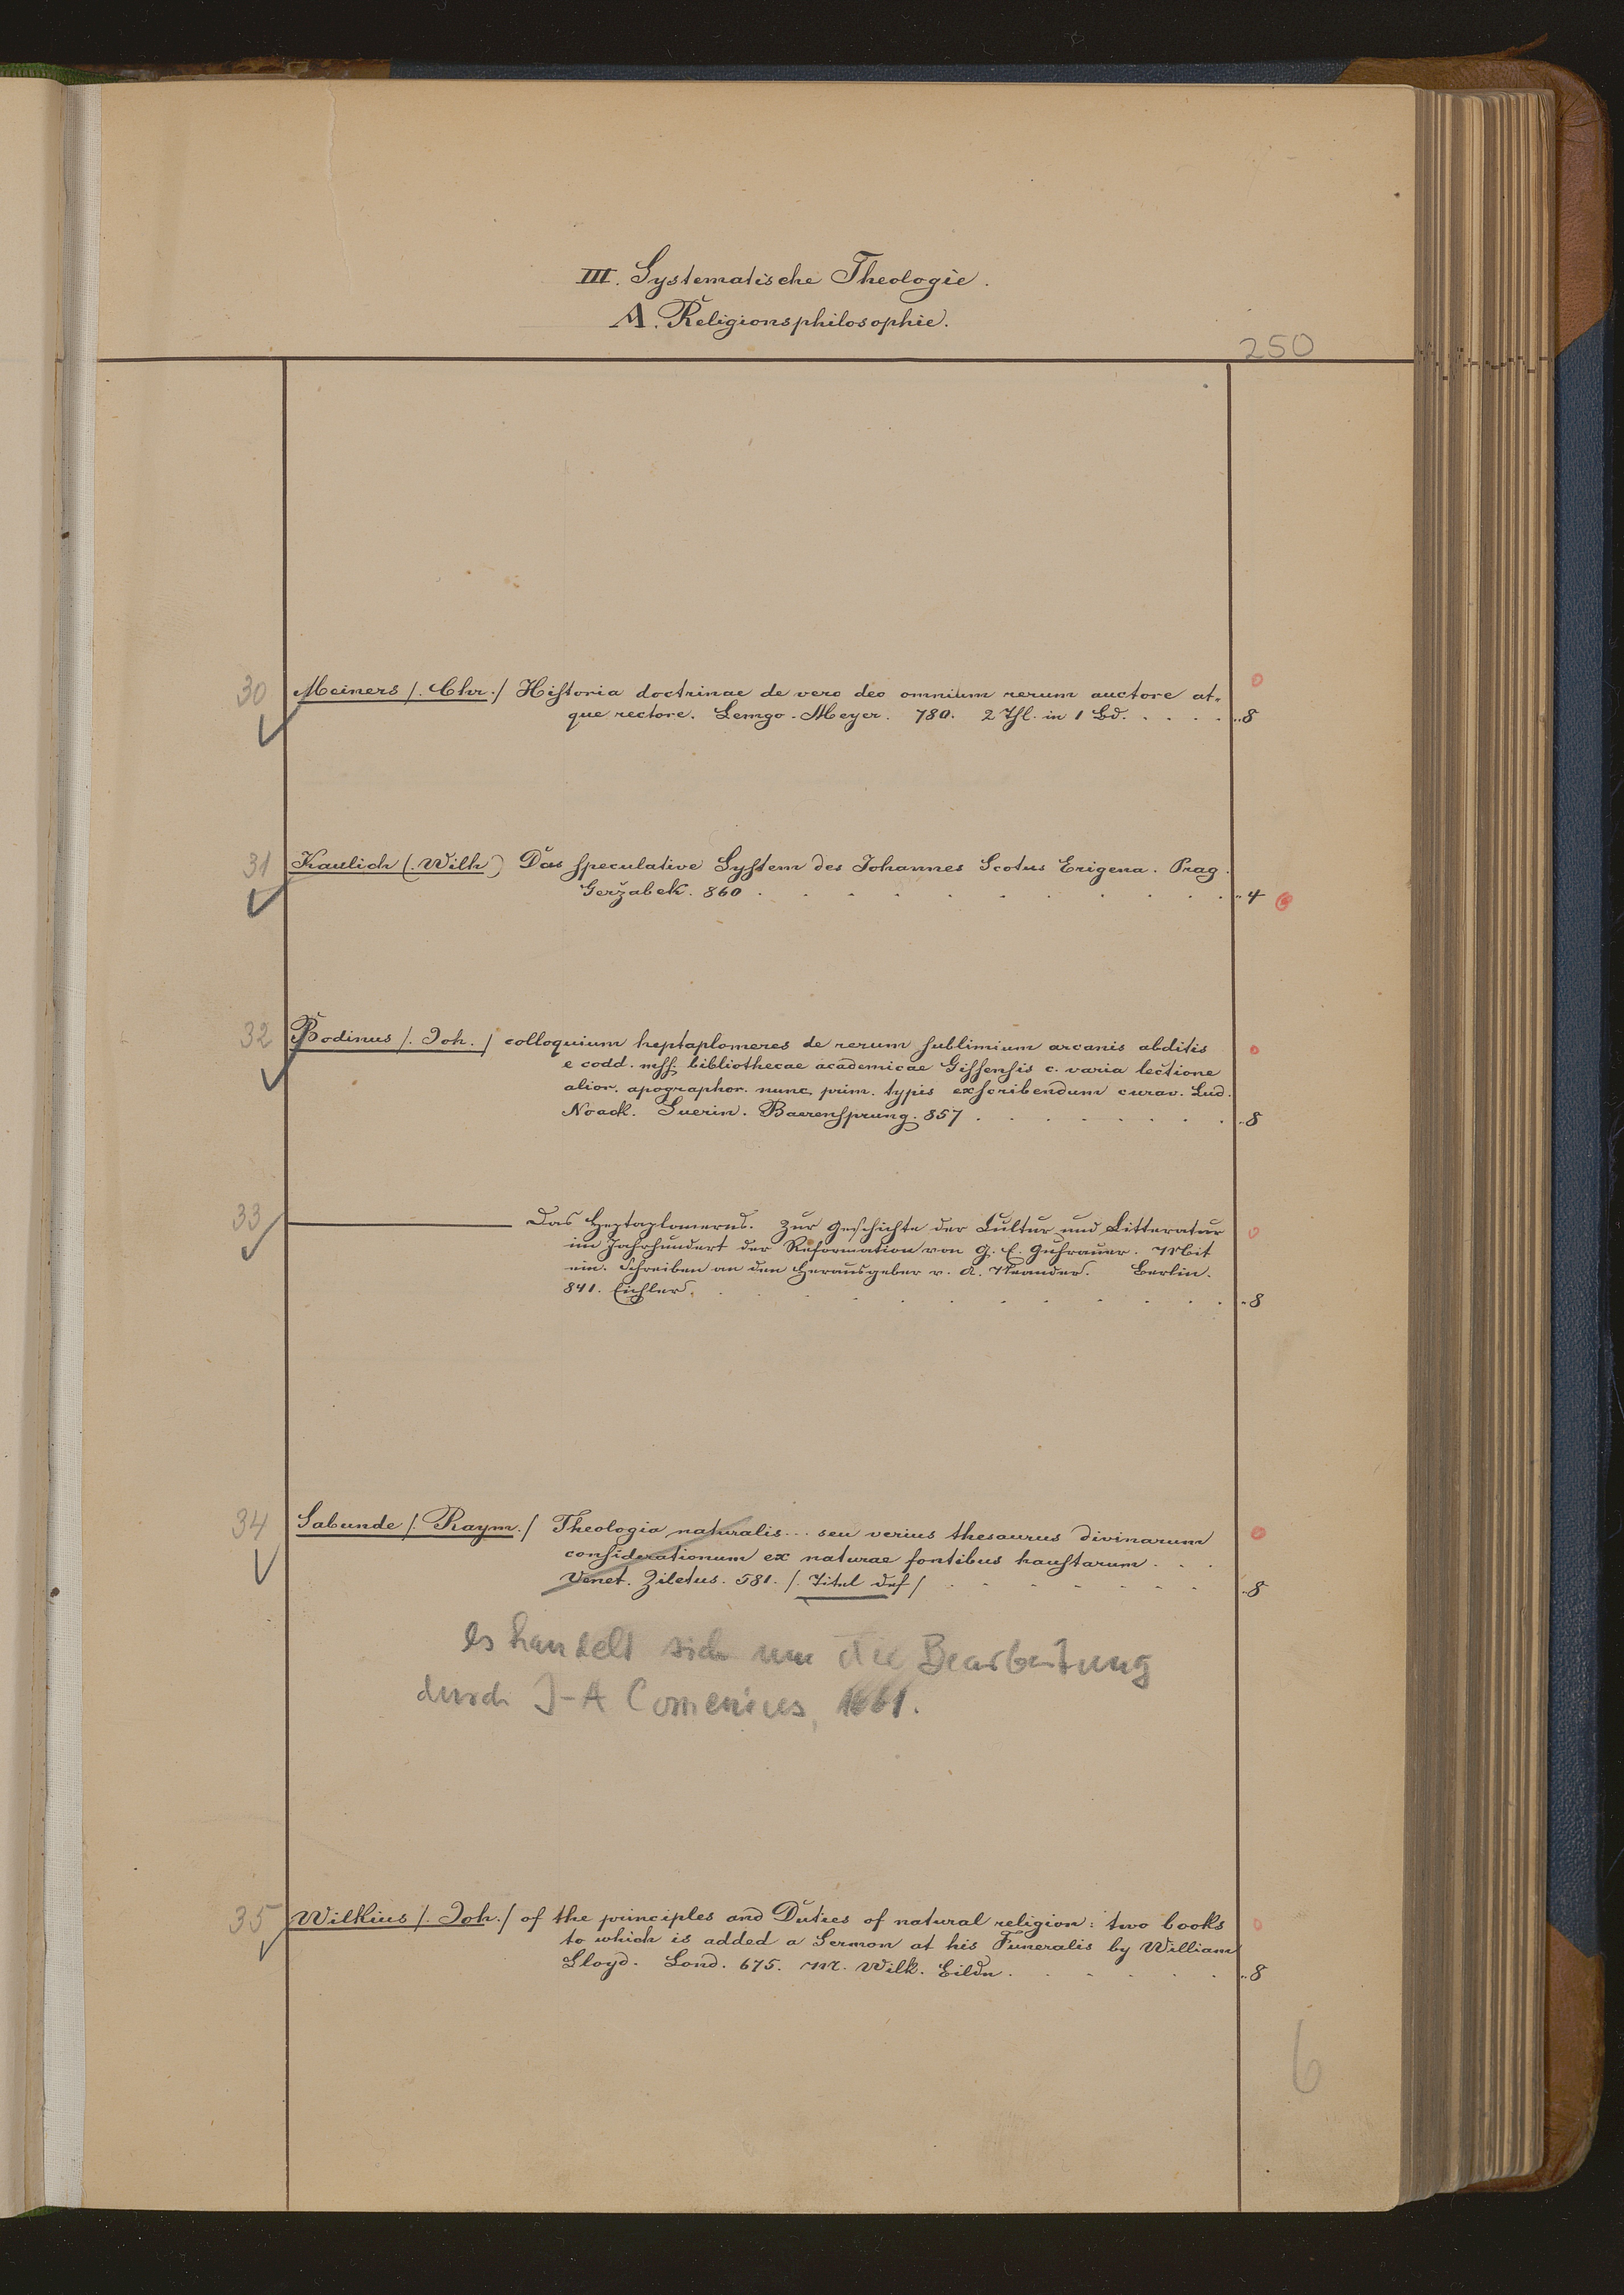 III. Systematische Theologie.
A. Religionsphilosophie.
250
30 Meiners /. Chr./ Historia doctrinae de vero deo omnium rerum auctore at-
que rectore. Lemgo. Meyer. 780. 2 Thl. in 1 Bd. . . . . . „8
31 Kaulich (. Wilh) Das speculative System des Johannes Scotus Erigena. Prag.
Geržabek. 860 . . . . . . . . . . „4
32 Bodinus /. Joh. / colloquium heptaplomeres de rerum sublimium arcanis abditis
e codd. mss. bibliothecae academicae Gissensis c. varia lectione
alior. apographor. nunc. prim. typis exscribendum curav. Lud.
Noack. Suerin. Baerensprung. 857 . . . . . . „8
33 Das Heptaplomeres. Zur Geschichte der Cultur und Litteratur
im Jahrhundert der Reformation von G. E. Guhrauer. Mit
ein. Schreiben an den Herausgeber v. A. Neander. Berlin.
841. Eichler. . . . . . . . . . . „8
34 Sabunde /. Raym./ Theologia naturalis... seu verius thesaurus divinarum
considerationum ex naturae fontibus haustarum . . .
Venet. Ziletus. 581. /. Titel def / . . . . . . „8
Es handelt sich um die Bearbeitung
durch J-A Comenius, 1661.
35 Wilkins /. Joh./ of the principles and Duties of natural religion: two books
to which is added a Sermon at his Funeralis by William
Lloyd. Lond. 675. M. Wilk. Bildn. . . . . . „8
6